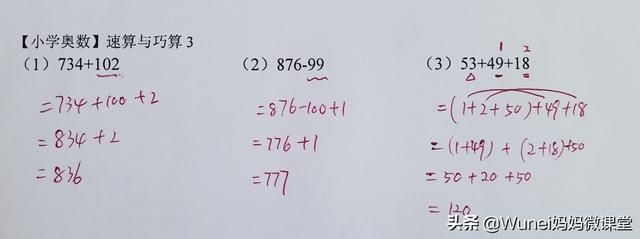 【小学奥数】速算与巧算 3
（1）734+102
=734+100+2
=834+2
=836
（2）876-99
=876-100+1
=776+1
=777
1 2
（3）53+49+18
=(1+2+50)+49+18
=(1+49)+(2+18)+50
=50+20+50
=120
头条 @Wunei妈妈微课堂